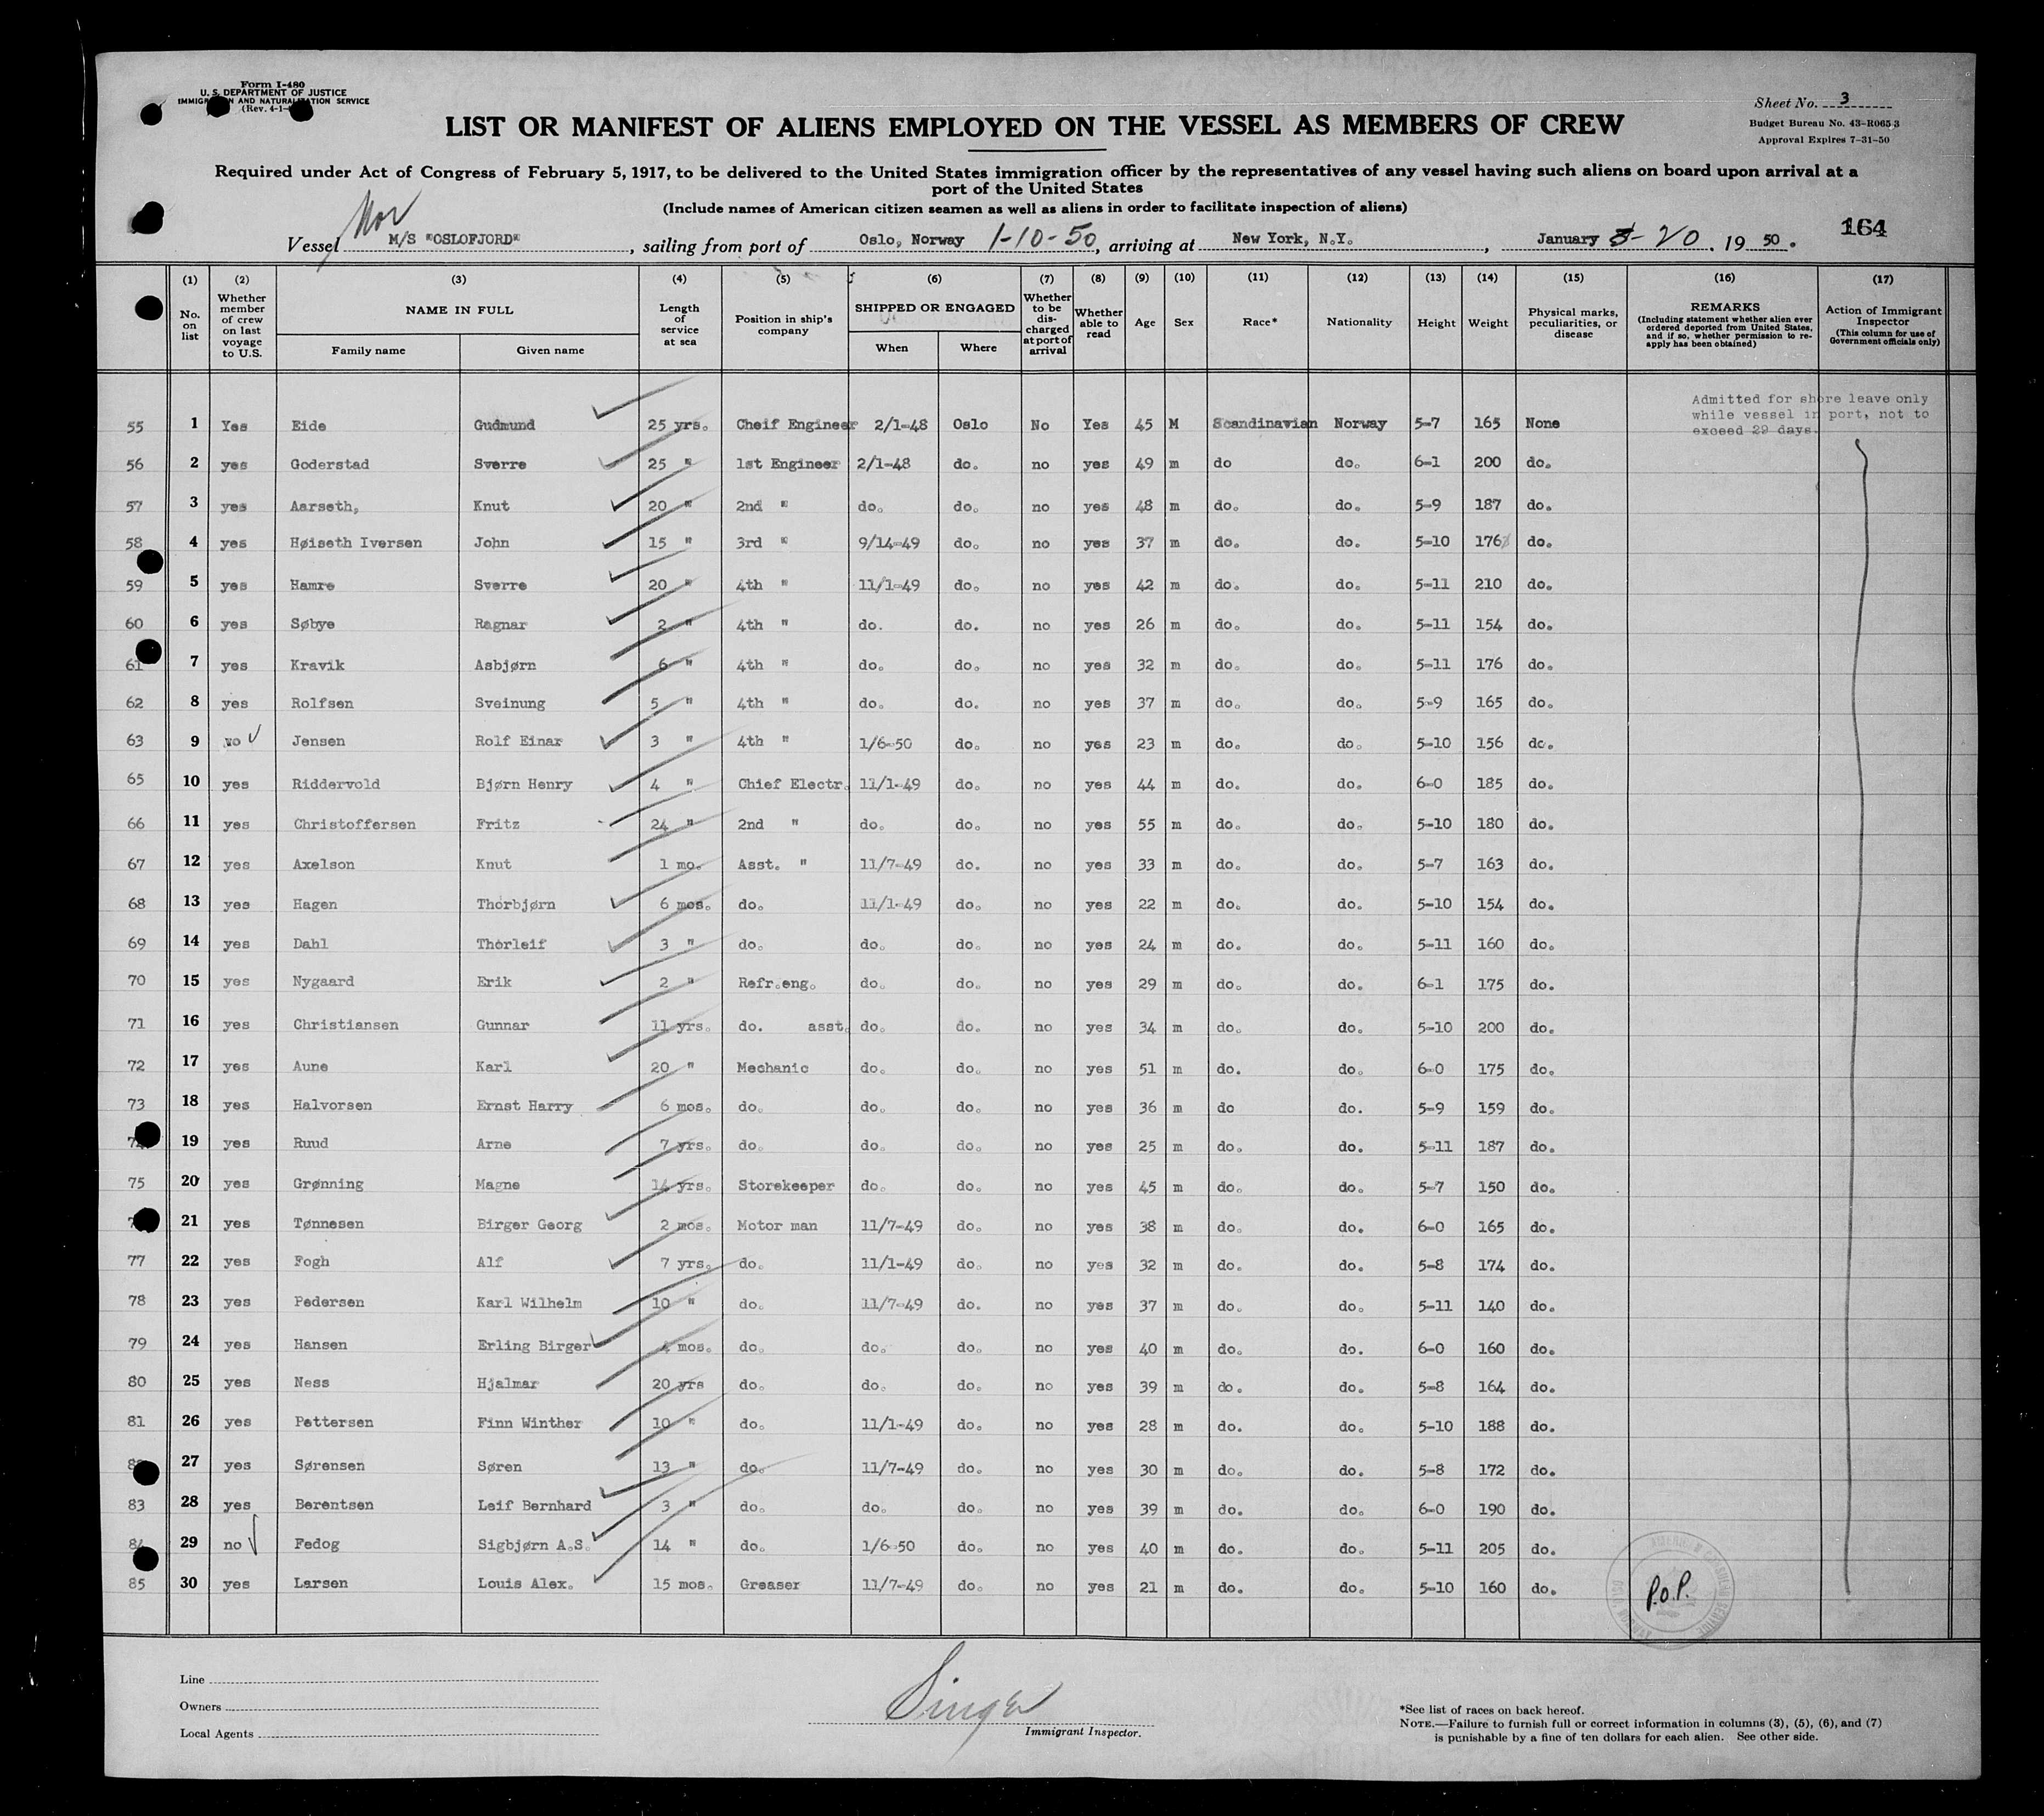 Form I-480
U. S. DEPARTMENT OF JUSTICE
IMMIGRATION AND NATURALIZATION SERVICE
(Rev. 4-1-
Sheet No. 3
Budget Bureau No. 43-R065.3
Approval Expires 7-31-50
LIST OR MANIFEST OF ALIENS EMPLOYED ON THE VESSEL AS MEMBERS OF CREW
Required under Act of Congress of February 5, 1917, to be delivered to the United States immigration officer by the representatives of any vessel having such aliens on board upon arrival at a
port of the United States
(Include names of American citizen seamen as well as aliens in order to facilitate inspection of aliens)
Nor
Vessel M/S "OSLOFJORD", sailing from port of Oslo, Norway 1-10-50, arriving at New York, N.Y., January 20, 1950. 164
(1) (2) (3) (4) (5) (6) (7) (8) (9) (10) (11) (12) (13) (14) (15) (16) (17)
No. on list
Whether member of crew on last voyage to U.S.
NAME IN FULL
Family name
Given name
Length of service at sea
Position in ship's company
SHIPPED OR ENGAGED
When
Where
Whether to be discharged at port of arrival
Whether able to read
Age
Sex
Race*
Nationality
Height
Weight
Physical marks, peculiarities, or disease
REMARKS
(Including statement whether alien ever ordered deported from United States, and if so, whether permission to reapply has been obtained)
Action of Immigrant Inspector
(This column for use of Government officials only)
Admitted for shore leave only
while vessel in port, not to
exceed 29 days.
55 1 Yes Eide Gudmund 25 yrs. Cheif Engineer 2/1-48 Oslo No Yes 45 M Scandinavian Norway 5-7 165 None
56 2 yes Goderstad Sverre 25 " 1st Engineer 2/1-48 do. no yes 49 m do do. 6-1 200 do.
57 3 yes Aarseth, Knut 20 " 2nd " do. do. no yes 48 m do. do. 5-9 187 do.
58 4 yes Høiseth Iversen John 15 " 3rd " 9/14-49 do. no yes 37 m do. do. 5-10 176 do.
59 5 yes Hamre Sverre 20 " 4th " 11/1-49 do. no yes 42 m do. do. 5-11 210 do.
60 6 yes Søbye Ragnar 2 " 4th " do. do. no yes 26 m do. do. 5-11 154 do.
61 7 yes Kravik Asbjørn 6 " 4th " do. do. no yes 32 m do. do. 5-11 176 do.
62 8 yes Rolfsen Sveinung 5 " 4th " do. do. no yes 37 m do. do. 5-9 165 do.
63 9 no Jensen Rolf Einar 3 " 4th " 1/6-50 do. no yes 23 m do. do. 5-10 156 do.
65 10 yes Riddervold Bjørn Henry 4 " Chief Electr. 11/1-49 do. no yes 44 m do. do. 6-0 185 do.
66 11 yes Christoffersen Fritz 24 " 2nd " do. do. no yes 55 m do. do. 5-10 180 do.
67 12 yes Axelson Knut 1 mo. Asst. " 11/7-49 do. no yes 33 m do. do. 5-7 163 do.
68 13 yes Hagen Thorbjørn 6 mos. do. 11/1-49 do. no yes 22 m do. do. 5-10 154 do.
69 14 yes Dahl Thorleif 3 " do. do. do. no yes 24 m do. do. 5-11 160 do.
70 15 yes Nygaard Erik 2 " Refr.eng. do. do. no yes 29 m do. do. 6-1 175 do.
71 16 yes Christiansen Gunnar 11 yrs. do. asst. do. do. no yes 34 m do. do. 5-10 200 do.
72 17 yes Aune Karl 20 " Mechanic do. do. no yes 51 m do. do. 6-0 175 do.
73 18 yes Halvorsen Ernst Harry 6 mos. do. do. do. no yes 36 m do do. 5-9 159 do.
19 yes Ruud Arne 7 yrs. do. do. do. no yes 25 m do. do. 5-11 187 do.
75 20 yes Grønning Magne 14 yrs. Storekeeper do. do. no yes 45 m do. do. 5-7 150 do.
21 yes Tønnesen Birger Georg 2 mos. Motor man 11/7-49 do. no yes 38 m do. do. 6-0 165 do.
77 22 yes Fogh Alf 7 yrs. do. 11/1-49 do. no yes 32 m do. do. 5-8 174 do.
78 23 yes Pedersen Karl Wilhelm 10 " do. 11/7-49 do. no yes 37 m do. do. 5-11 140 do.
79 24 yes Hansen Erling Birger mos. do. do. do. no yes 40 m do. do. 6-0 160 do.
80 25 yes Ness Hjalmar 20 yrs do. do. do. no yes 39 m do. do. 5-8 164 do.
81 26 yes Pettersen Finn Winther 10 " do. 11/1-49 do. no yes 28 m do. do. 5-10 188 do.
27 yes Sørensen Søren 13 " do. 11/7-49 do. no yes 30 m do. do. 5-8 172 do.
83 28 yes Berentsen Leif Bernhard 3 " do. do. do. no yes 39 m do. do. 6-0 190 do.
84 29 no Fedog Sigbjørn A.S. 14 " do. 1/6-50 do. no yes 40 m do. do. 5-11 205 do.
85 30 yes Larsen Louis Alex. 15 mos. Greaser 11/7-49 do. no yes 21 m do. do. 5-10 160 do.
P.O.P.
Line
Owners
Local Agents
Singer
Immigrant Inspector.
*See list of races on back hereof.
NOTE.—Failure to furnish full or correct information in columns (3), (5), (6), and (7)
is punishable by a fine of ten dollars for each alien. See other side.